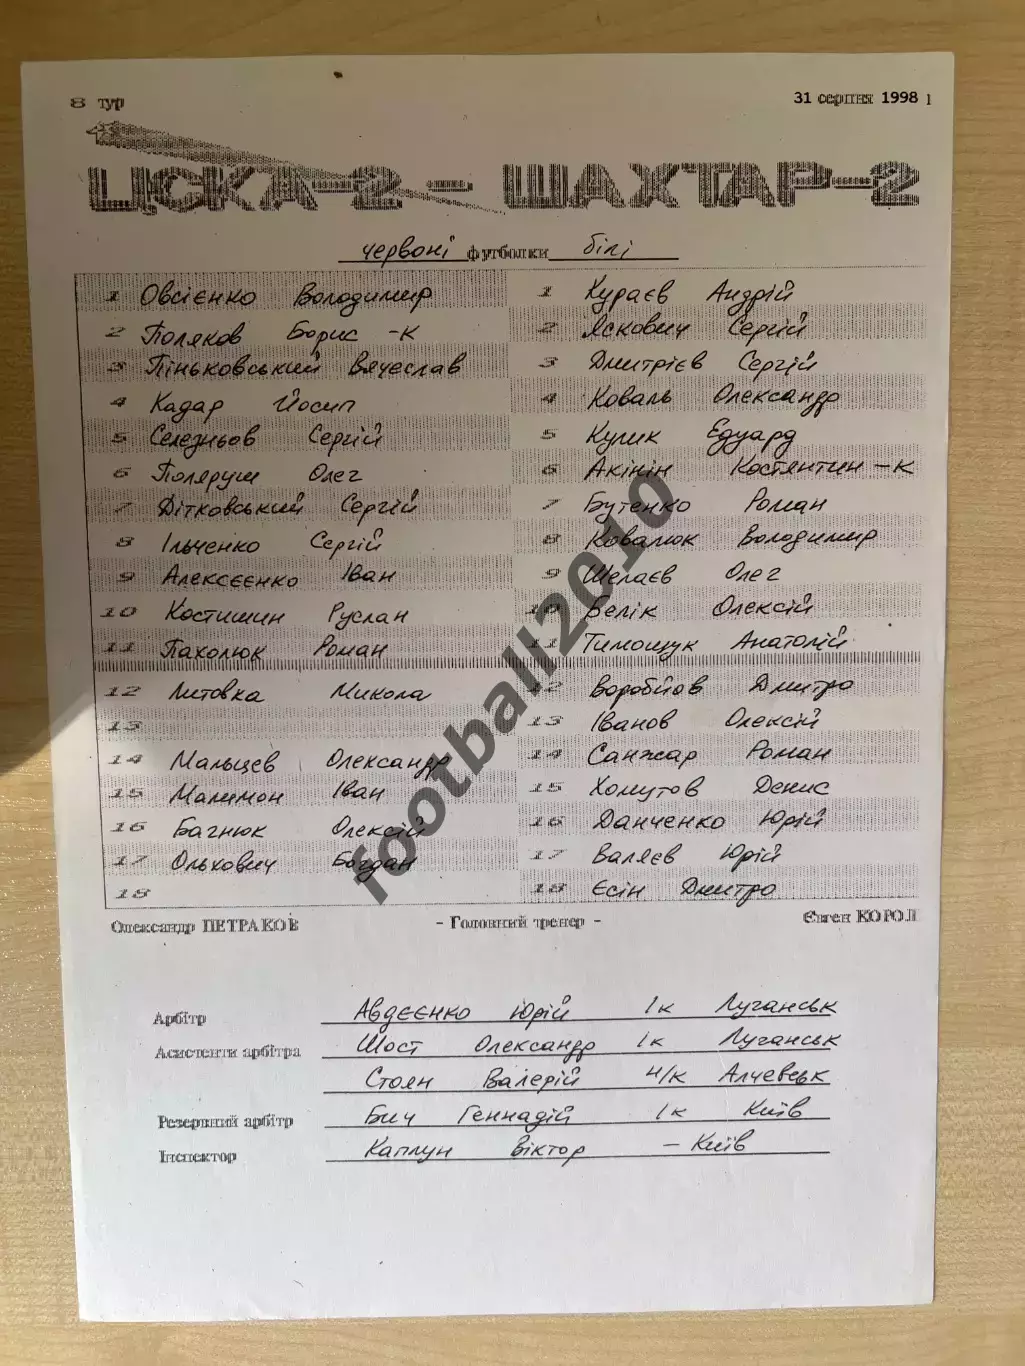 8 тур
31 серпня 1998 1
ЦСКА-2 - ШАХТАР-2
червоні футболки білі
1 Овсієнко Володимир
2 Поляков Борис -К
3 Піньковський Вячеслав
4 Кадар Йосип
5 Селезньов Сергій
6 Поляруш Олег
7 Дітковський Сергій
8 Ільченко Сергій
9 Алексєєнко Іван
10 Костишин Руслан
11 Пахолюк Роман
12 Литовка Микола
13
14 Мальцев Олександр
15 Малимон Іван
16 Багнюк Олексій
17 Ольхович Богдан
18
1 Кураєв Андрій
2 Яскович Сергій
3 Дмитрієв Сергій
4 Коваль Олександр
5 Кулик Едуард
6 Акінін Костянтин -К
7 Бутенко Роман
8 Ковалюк Володимир
9 Шелаєв Олег
10 Белік Олексій
11 Тимощук Анатолій
12 Воробйов Дмитро
13 Іванов Олексій
14 Санжар Роман
15 Хомутов Денис
16 Данченко Юрій
17 Валяєв Юрій
18 Єсін Дмитро
Олександр ПЕТРАКОВ - Головний тренер - Євген КОРОЛ
Арбітр Авдєєнко Юрій 1к Луганськ
Асистенти арбітра Шост Олександр 1к Луганськ
Стоян Валерій н/к Алчевськ
Резервний арбітр Бич Геннадій 1к Київ
Інспектор Каплун Віктор - Київ
football2010